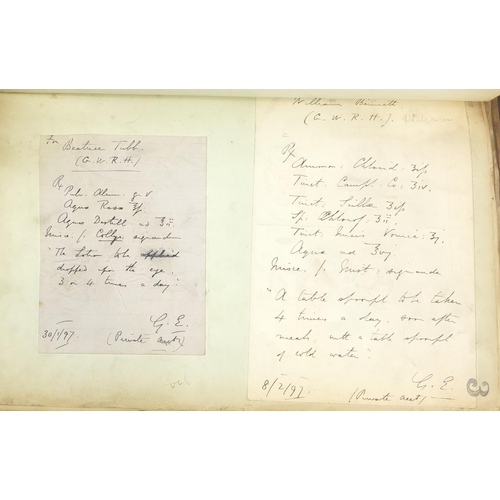 For Beatrice Tubb.
(G. W. R. H.)
Rx
Pulv. Alum. gr V
Aqua Rosa ʒss
Aqua Destill ad ʒii
Misce. ft. Collyr. signandum
"The Lotion to be applied
dropped for the eye
3 or 4 times a day."
G. E.
(Private acct)
30/1/97.
William Bennett
(G. W. R. H.).
Rx
Ammon: Chlorid: ʒss
Tinct. Camph. Co: ʒiv.
Tinct: Scillae ʒss
Sp: Chlorof: ʒii
Tinct: Nucis Vomic: ʒj
Aqua ad ʒvj
Misce. ft. Mist: signanda
"A table spoonful to be taken
4 times a day, soon after
meals, with a table spoonful
of cold water."
G. E.
8/2/97.
(Private acct)
3